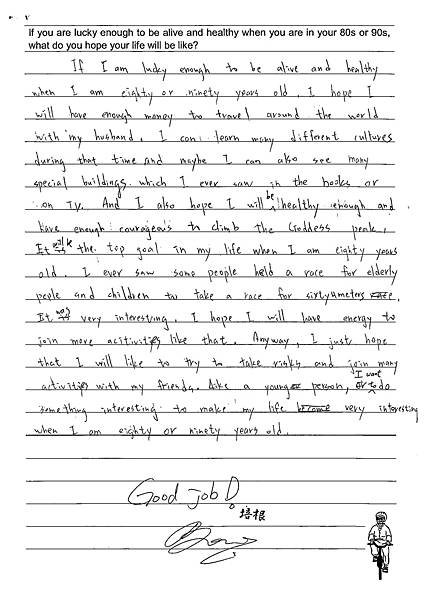 If you are lucky enough to be alive and healthy when you are in your 80s or 90s,
what do you hope your life will be like?
If I am lucky enough to be alive and healthy
when I am eighty or ninety years old. I hope I
will have enough money to travel around the world
with my husband. I can learn many different cultures
during that time and maybe I can also see many
special buildings which I ever saw in the books or
on TV. And I also hope I will be healthy enough and
have enough courageous to climb the Goddess peak.
It will be the top goal in my life when I am eighty years
old. I ever saw some people held a race for elderly
people and children to take a race for sixty meters race.
It was very interesting. I hope I will have energy to
join more activities like that. Anyway, I just hope
that I will like to try to take risks and join many
activities with my friends. Like a young person, I want to do
something interesting to make my life become very interesting
when I am eighty or ninety years old.
Good job!
培根